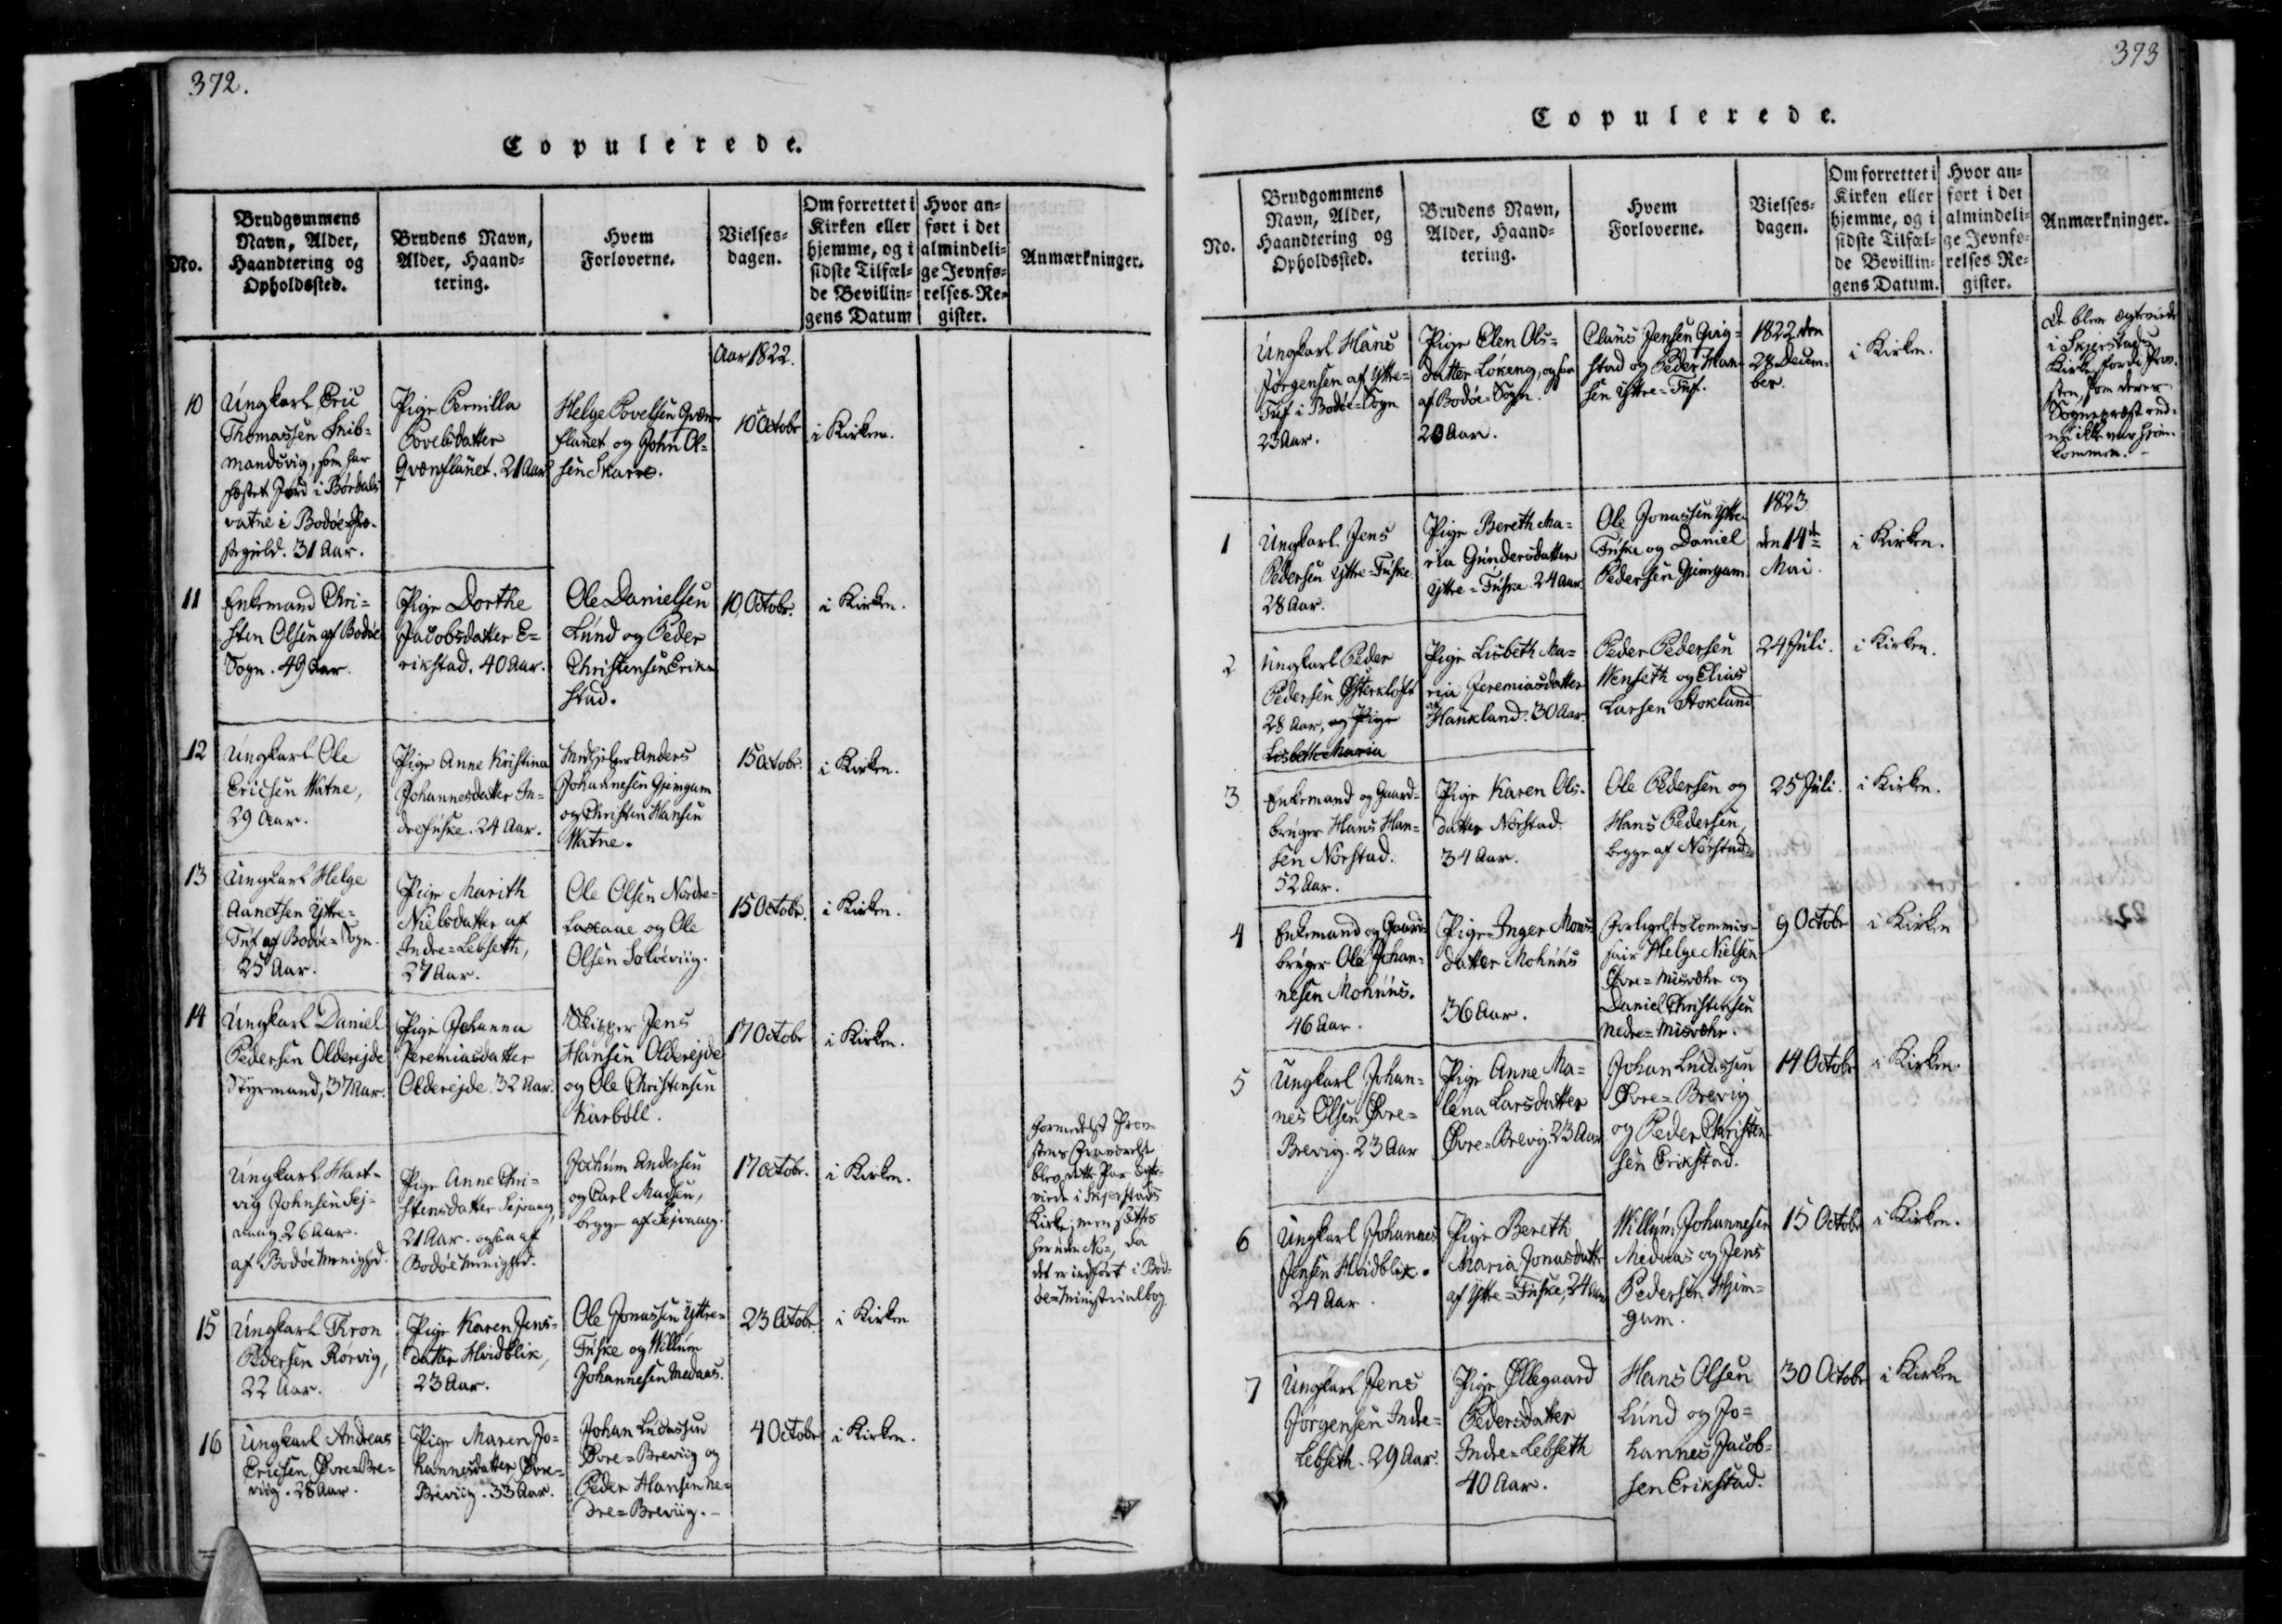 372.
Copulerede.
No.
Brudgommens
Navn, Alder,
Haandtering og
Opholdssted.
Brudens Navn,
Alder, Haand-
tering.
Hvem
Forloverne.
Vielses-
dagen.
Om forrettet i
Kirken eller
hjemme, og i
sidste Tilfæl-
de Bevillin-
gens Datum
Hvor an-
ført i det
almindeli-
ge Jevnfø-
relses-Re-
gister.
Anmærkninger.
Aar 1822.
10
Ungkarl Eric
Thomassen Skib-
mandsvig, som har
fæstet Jord i Børdals
vatne i Bodøe-Præ-
stegield. 31 Aar.
Pige Pernilla
Povelsdatter
Qvænflaaet. 21 Aar
Helge Povelsen Qvæn-
flaaet og John Ol-
sen Skare.
10 Octobr
i Kirken.
11
Enkemand Chri-
sten Olsen af Bodøe
Sogn. 49 Aar.
Pige Dorthe
Jacobsdatter E-
rikstad. 40 Aar.
Ole Danielsen
Lund og Peder
Christensen Erik-
stad.
10 Octobr.
i Kirken.
12
Ungkarl Ole
Ericsen Watne,
29 Aar.
Pige Anne Kristina
Johannesdatter In-
drefuske. 24 Aar.
Medhjelper Anders
Johannesen Gjemgam
og Christen Hansen
Watne.
15 Octobr.
i Kirken.
13
Ungkarl Helge
Aanetsen Yttre-
Tuf af Bodøe-Sogn.
25 Aar.
Pige Marith
Nielsdatter af
Indre-Lebseth,
27 Aar.
Ole Olsen Nordre-
Laxaae og Ole
Olsen Soløeviig.
15 Octobr.
i Kirken.
14
Ungkarl Daniel
Pedersen Olderejde
Styrmand, 37 Aar.
Pige Johanna
Jeremiasdatter
Olderejde. 32 Aar.
Skipper Jens
Hansen Olderejde
og Ole Christensen
Karbøll.
17 Octobr
i Kirken.
Ungkarl Hart-
vig Johnsen Sej-
vaag 26 Aar.
af Bodøe Menighed.
Pige Anne Chri-
stensdatter Sejvaag,
21 Aar. ogsaa af
Bodøe Menighed.
Jochum Andersen
og Carl Madsen,
begge af Sejvaag.
17 Octobr.
i Kirken.
Formedelst Prov-
stens Fraværelse
blev dette Par egte-
viede i Skjerstads
Kirke; men sættes
her uden No, da
det er indført i Bod-
øe-Ministerialbog
15
Ungkarl Tron
Pedersen Rørvig,
22 Aar.
Pige Karen Jens-
datter Hvidblik,
23 Aar.
Ole Jonassen Yttre-
Fuske og Willum
Johannesen Medaas.
23 Octobr.
i Kirken
16
Ungkarl Andreas
Ericsen Øvre-Bre-
viig. 28 Aar.
Pige Maren Jo-
hannesdatter Øvre-
Breviig. 33 Aar.
Johan Lucassen
Øvre-Breviig og
Peder Hansen Ne-
dre-Breviig.
4 Octobr
i Kirken.
373
Copulerede.
No.
Brudgommens
Navn, Alder,
Haandtering og
Opholdssted.
Brudens Navn,
Alder, Haand-
tering.
Hvem
Forloverne.
Vielses-
dagen.
Om forrettet i
Kirken eller
hjemme, og i
sidste Tilfæl-
de Bevillin-
gens Datum.
Hvor an-
ført i det
almindeli-
ge Jevnfø-
relses Re-
gister.
Anmærkninger.
Ungkarl Hans
Jørgensen af Yttre-
Tuf i Bodøe-Sogn
23 Aar.
Pige Elen Ols-
datter Løkeng, ogsaa
af Bodøe-Sogn.
20 Aar.
Claus Jensen Grig-
stad og Peder Han-
sen Yttre-Tuf.
1822 den
28 Decem-
ber.
i Kirken.
De bleve egteviede
i Skjerstads
Kirke, fordi Prov-
sten, som deres
Sognepræst end-
nu ikke var hjem-
kommen.
1
Ungkarl Jens
Pedersen Yttre-Fuske
28 Aar.
Pige Bereth Ma-
ria Gundersdatter
Yttre-Fuske. 24 Aar.
Ole Jonassen Yttre
Fuske og Daniel
Pedersen Gjemgam
1823
den 14de
Mai.
i Kirken.
2
Ungkarl Peder
Pedersen Østerkløft
28 Aar, og Pige
Lisbeth Maria
Pige Lisbeth Ma-
ria Jeremiasdatter
af Haukland. 30 Aar.
Peder Pedersen
Wenseth og Elias
Larsen Stokland
24 Juli.
i Kirken.
3
Enkemand og Gaard-
bruger Hans Han-
sen Nørstad.
52 Aar.
Pige Karen Ols-
datter Nørstad.
34 Aar.
Ole Pedersen og
Hans Pedersen
begge af Nørstad.
25 Juli.
i Kirken.
4
Enkemand og Gaard-
bruger Ole Johan-
nesen Mohuus.
46 Aar.
Pige Inger Mons-
datter Mohuus
36 Aar.
Forligelsescommis-
sair Helge Nielsen
Øvre-Misvær og
Daniel Christensen
Nedre-Misvær.
9 Octobr
i Kirken
5
Ungkarl Johan-
nes Olsen Øvre-
Brevig. 23 Aar
Pige Anne Ma-
lena Larsdatter
Øvre-Brevig. 23 Aar
Johan Lucassen
Øvre-Brevig
og Peder Christen-
sen Erikstad.
14 Octobr
i Kirken.
6
Ungkarl Johannes
Jensen Hvidblik.
24 Aar.
Pige Bereth
Maria Jonasdatter
af Yttre-Fuske, 24 Aar
Willum Johannesen
Medaas og Jens
Pedersen Hjem-
gam.
15 Octobr
i Kirken.
7
Ungkarl Jens
Jørgensen Indre-
Lebseth. 29 Aar.
Pige Øllegaard
Pedersdatter
Indre-Lebseth
40 Aar.
Hans Olsen
Lund og Jo-
hannes Jacob-
sen Erikstad.
30 Octobr
i Kirken